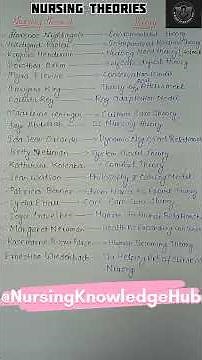 NURSING THEORIES
Nursing Theorist Theory
Florence Nightingale Environmental Theory
Hildegard Peplau Interpersonal Relations Theory
Virginia Henderson Nursing Need Theory
Dorothea Orem Self care deficit Theory
Myra Levine Conservation Model
Imogene King Theory of Attainment
Callista Roy Roy Adaptation Model
Madeleine Leininger Culture Care Theory
Faye Abdellah 21 Nursing Theory
Ida Jean Orlando Dynamic Nurse-Patient Relationship
Betty Neuman System Model Theory
Katharine Kolcaba Comfort Theory
Jean Watson Philosophy & Caring Model
Patricia Benner From Novice to Expert Theory
Lydia E Hall Core, Care, Cure Theory
Joyce Travelbee Human to Human Relationship
Margaret Newman Health As Expanding Consciousness
Rosemarie Rizzo Parse Human Becoming Theory
Ernestine Wiedenbach The Helping Art of Clinical
Nursing
@NursingKnowledgeHub